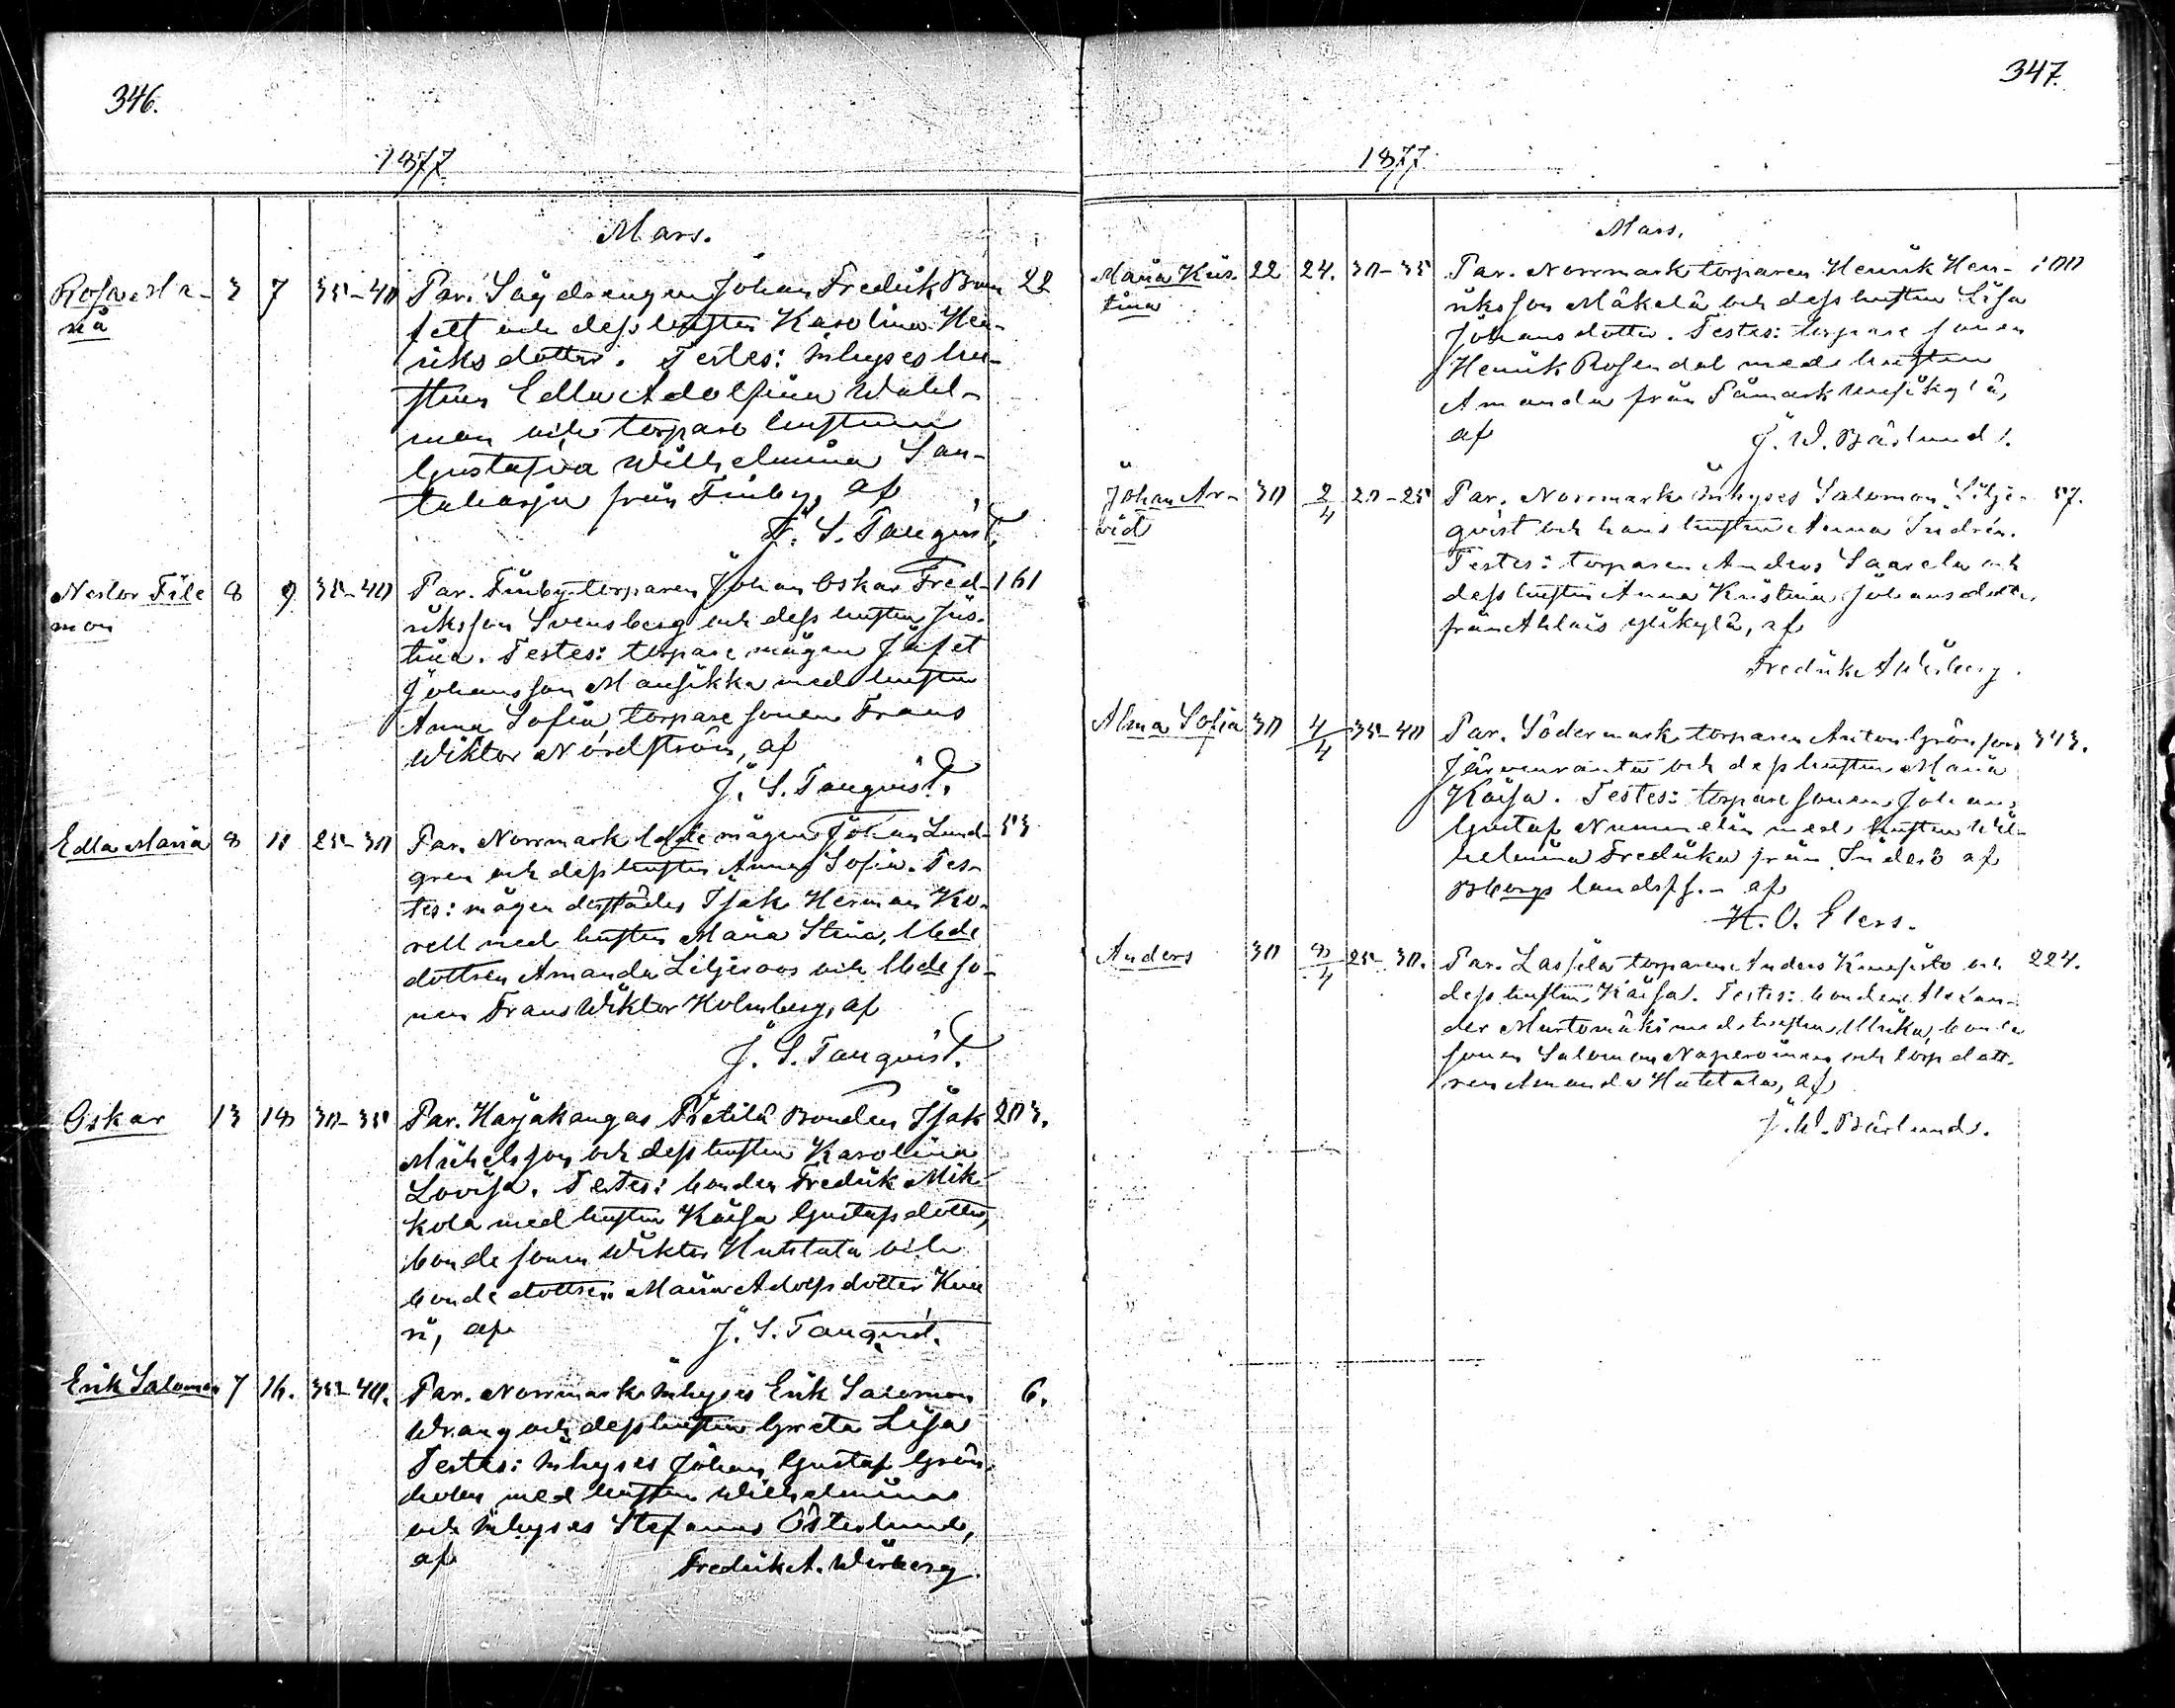 346.
1877.
Mars.
Rosa Ma-
ria
3 7 35-40 Par. Sågdrengen Johan Fredrik Brun 22
felt och dess hustru Karolina Hen-
riksdotter. Testes: Inhyses hu-
strun Edla Adolfina Wahl-
man och torpare hustrun
Gustafva Wilhelmina San-
taharju från Finby, af
J. S. Tanqvist.
Nestor File
mon
8 9 35-40 Par. Finby torparen Johan Oskar Fred- 161
riksson Svensberg och dess hustru Jus-
tina. Testes: torpare mågen Jafet
Johansson Mansikka med hustru
Anna Sofia, torpare sonen Frans
Wiktor Nordström, af
J. S. Tanqvist.
Edla Maria 8 11 25-30 Par. Norrmark bonde mågen Johan Lund- 53
gren och dess hustru Anna Sofia. Tes-
tes: mågen derstädes Isak Herman Ko-
rell med hustru Maria Stina, bde
dottren Amanda Liljeroos och bde so-
nen Frans Wiktor Holmberg, af
J. S. Tanqvist.
Oskar 13 18 30-35 Par. Harjakangas Pietilä Bonden Isak 203.
Michelsson och dess hustru Karolina
Lovisa. Testes: bonden Fredrik Mik-
kola med hustru Kaisa Gustafsdotter,
bonde sonen Wiktor Huhtala och
bonde dottren Maria Adolfsdotter Kuu
si, af J. S. Tanqvist.
Erik Salomon 7 16. 35-40. Par. Norrmark Inhyses Erik Salomon 6.
Wrang och dess hustru Greta Lisa
Testes: Inhyses Johan Gustaf Grön-
holm med hustru Wilhelmina
och Inhyses Stefanus Österlund,
af Fredrik A. Widberg.
347.
1877.
Mars.
Maria Kris-
tina
22 24. 30-35 Par. Norrmark torparen Henrik Hen- 100
riksson Mäkelä och dess hustru Lisa
Johansdotter. Testes: torpare sonen
Henrik Rosendal med hustrun
Amanda från Påmark Uusikylä,
af J. W. Bärlund.
Johan Ar-
vid
30 2/4 20-25 Par. Norrmark Inhyses Salomon Lilje- 57.
qvist och hans hustru Anna Indrén.
Testes: torparen Anders Saarela och
dess hustru Anna Kristina Johansdotter
från Ahlais ylikylä, af
Fredrik A. Widberg.
Alma Sofia 30 4/4 35-40 Par. Södermark torparen Anton Grönfors 343.
Järvenranta och dess hustru Maria
Kaisa. Testes: torpare sonen Johan
Gustaf Nummelin med hustru Wil-
helmina Fredrika från Inderö af
Bbergs landsfs.- af
K. O. Elers.
Anders 30 8/4 25-30. Par. Lassila torparen Anders Kiviristo och 224.
dess hustru Kaisa. Testes: bonden Alexan-
der Murtomäki med hustru Ulrika, bonde
sonen Salomon Naperoinen och torp dott-
ren Amanda Huhtala, af
J. W. Bärlund.